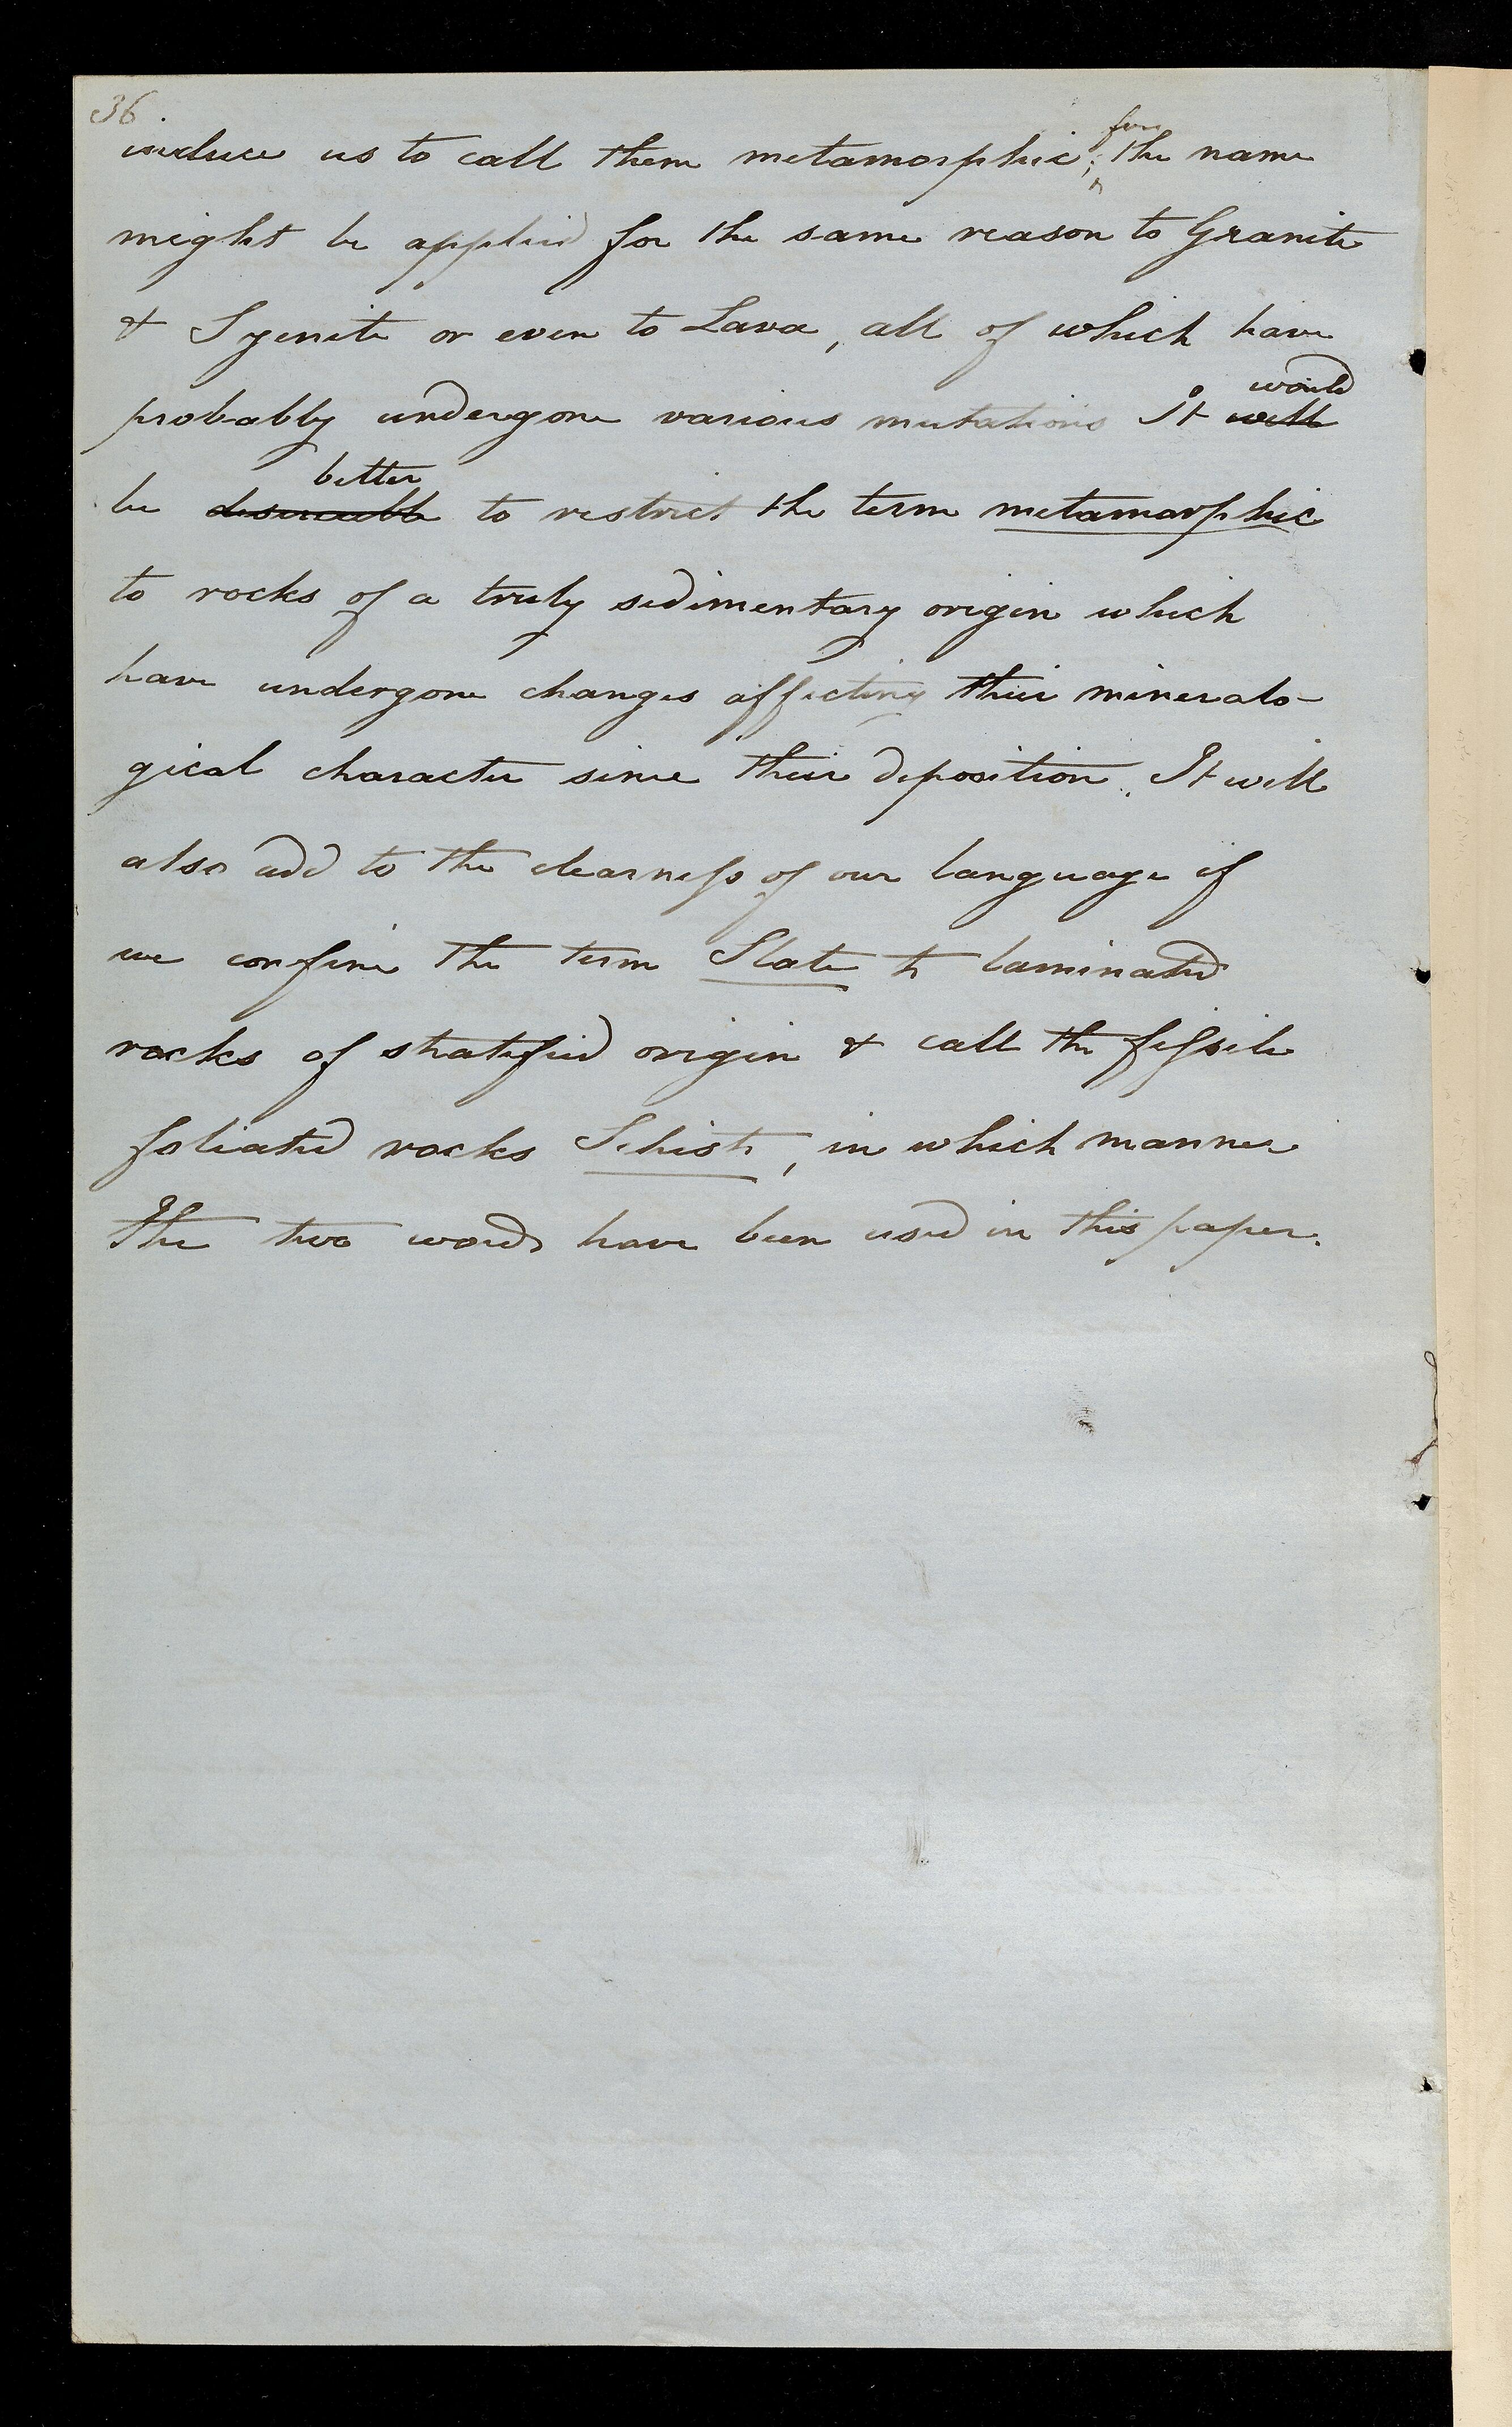 36
induce us to call them metamorphic; for the name
might be applied for the same reason to Granite
& Syenite or even to Lava, all of which have
probably undergone various mutations It will would
be desireable better to restrict the term metamorphic
to rocks of a truly sedimentary origin which
have undergone changes affecting their mineralo-
gical character since their deposition. It will
also add to the clearness of our language if
we confine the term Slate to laminated
rocks of stratified origin & call the fissile
foliated rocks Schist, in which manner
the two words have been used in this paper.